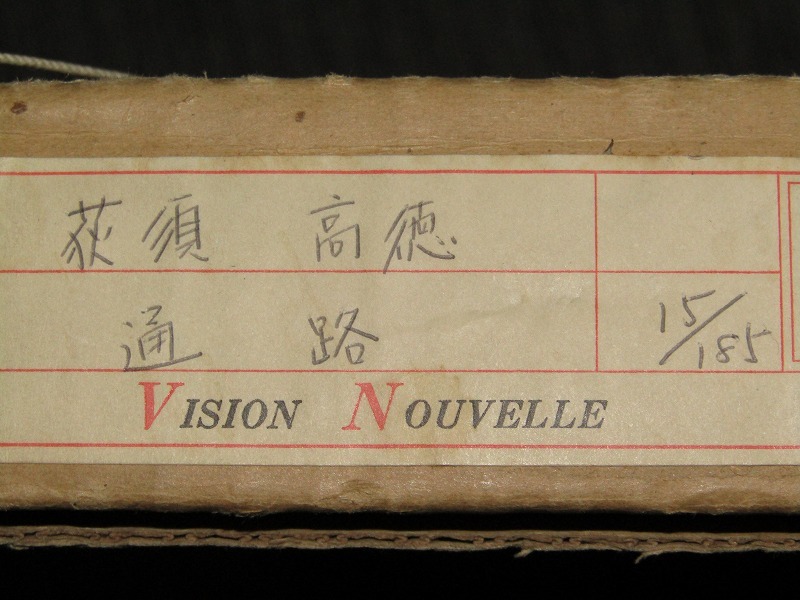 荻須 高徳
通路 15/185
VISION NOUVELLE